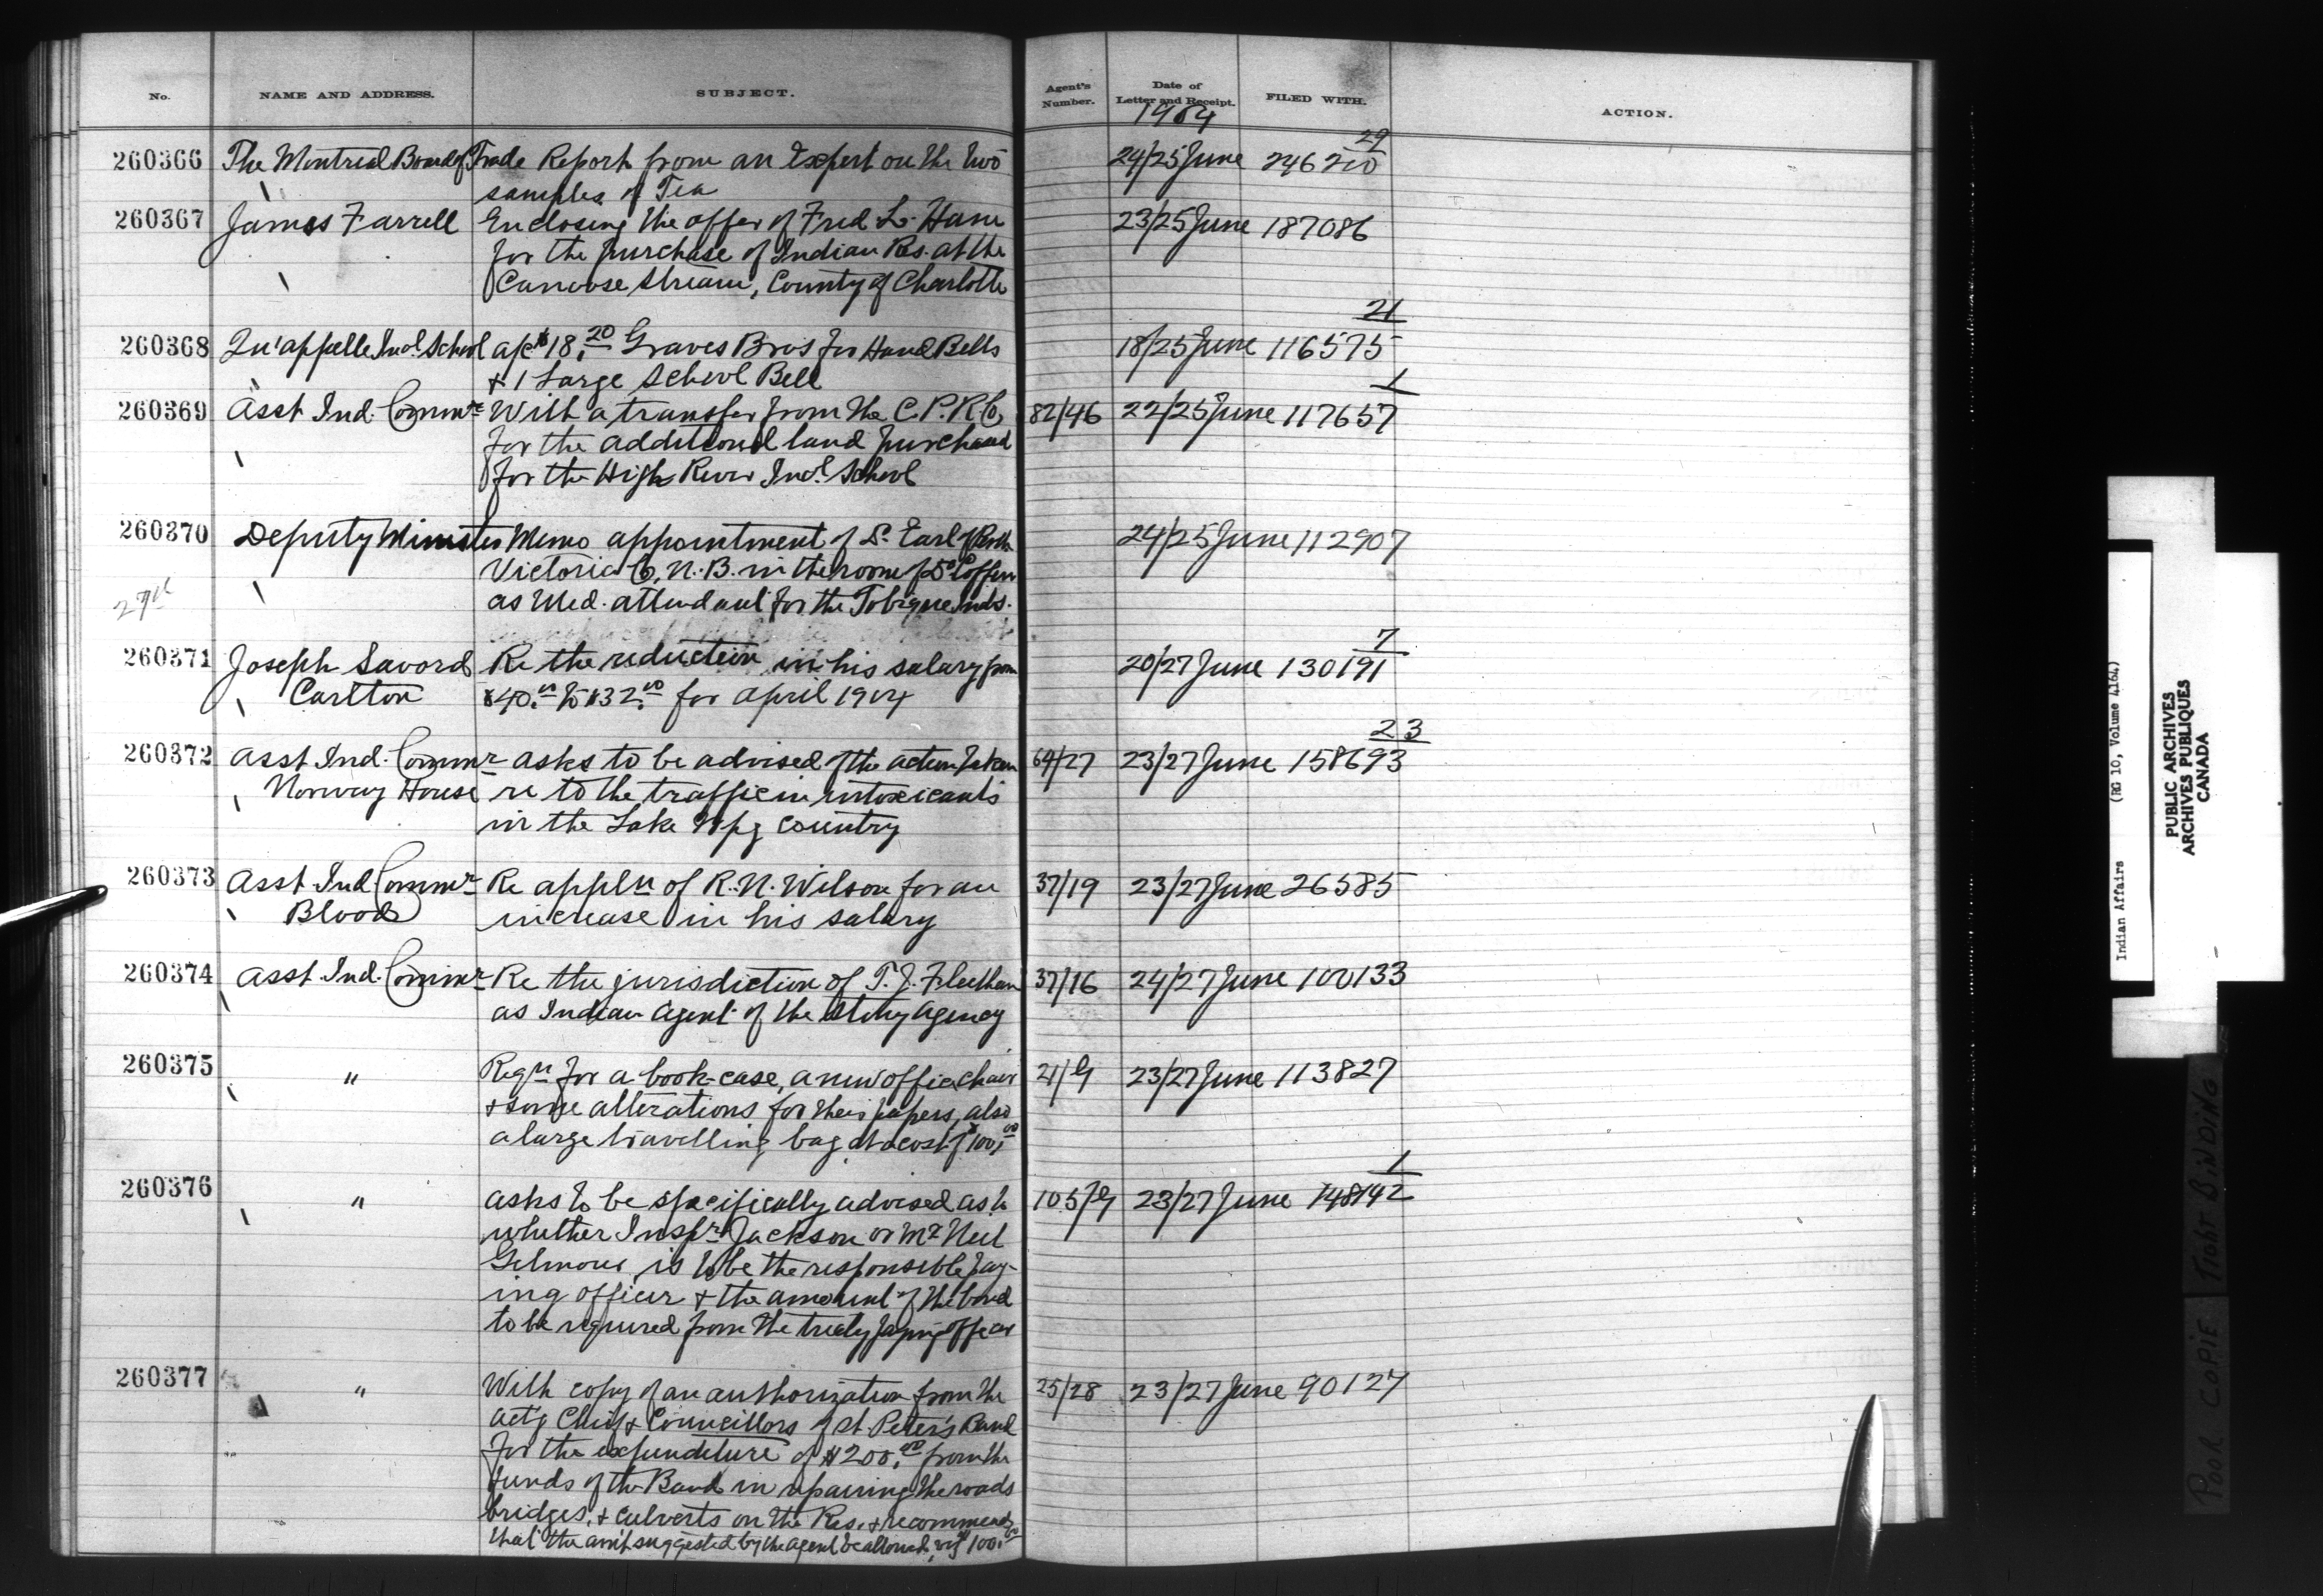 No. NAME AND ADDRESS. SUBJECT. Agent's Number. Date of Letter and Receipt. FILED WITH. ACTION.
1904
29
260366 The Montreal Board of Trade Report from an Expert on the two 24/25 June 246210
samples of Tea
260367 James Farrell Enclosing the offer of Fred L. Ham 23/25 June 187086
for the purchase of Indian Res. at the
Canoose Stream, County of Charlotte
21
260368 Qu'appelle Indl. School a/c $18.20 Graves Bros for Hand Bells 18/25 June 116575
& 1 Large School Bell
1
260369 Asst Ind. Commr With a transfer from the C.P.R. Co. 82/46 22/25 June 117657
for the additional land purchased
for the High River Indl. School
260370 Deputy Minister Memo appointment of Dr. Earl of Perth 24/25 June 112907
Victoria Co, N.B. in the room of Dr.
as Med. attendant for the Tobique Inds.
7
260371 Joseph Savord Re the reduction in his salary from 20/27 June 130191
Carlton $40.00 to $32.00 for April 1904
23
260372 Asst Ind. Commr asks to be advised of the action taken 64/27 23/27 June 158693
Norway House re to the traffic in intoxicants
in the Lake Wpg country
260373 Asst Ind Commr Re appln of R.N. Wilson for an 37/19 23/27 June 26585
Blood increase in his salary
260374 Asst Ind. Commr Re the jurisdiction of T.J. Fleetham 37/16 24/27 June 100133
as Indian Agent of the Stony Agency
260375 " Reqn for a book-case, a new office chair 21/9 23/27 June 113827
& some alterations for their papers, also
a large travelling bag at a cost of $100.00
1
260376 " asks to be specifically advised as to 105/9 23/27 June 148142
whether Inspr Jackson or Mr Neil
Gilmour, is to be the responsible pay-
ing officer & the amount of the bond
to be required from the treaty paying officer
260377 " With copy of an authorization from the 25/28 23/27 June 90127
act'g Chief & Councillors of St. Peter's Band
for the expenditure of $200.00 from the
funds of the Band in repairing the roads
bridges, & culverts on the Res. & recommends
that the amt suggested by the agent be allowed, viz $100.00
Indian Affairs (RG 10, Volume 4164)
PUBLIC ARCHIVES
ARCHIVES PUBLIQUES
CANADA
POOR COPIE TIGHT BINDING